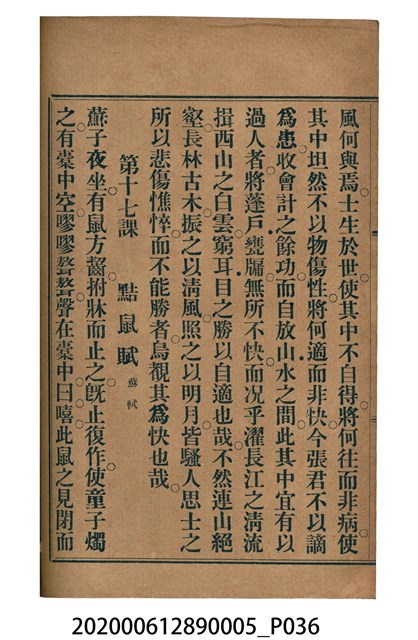 風何與焉士生於世使其中不自得將何往而非病使
其中坦然不以物傷性將何適而非快今張君不以謫
爲患收會計之餘功而自放山水之間此其中宜有以
過人者將蓬戶甕牖無所不快而況乎濯長江之淸流
揖西山之白雲窮耳目之勝以自適也哉不然連山絕
壑長林古木振之以淸風照之以明月皆騷人思士之
所以悲傷憔悴而不能勝者烏覩其爲快也哉
第十七課 黠鼠賦 蘇軾
蘇子夜坐有鼠方齧拊牀而止之旣止復作使童子燭
之有橐中空嘐嘐聱聱聲在橐中曰嘻此鼠之見閉而
202000612890005_P036